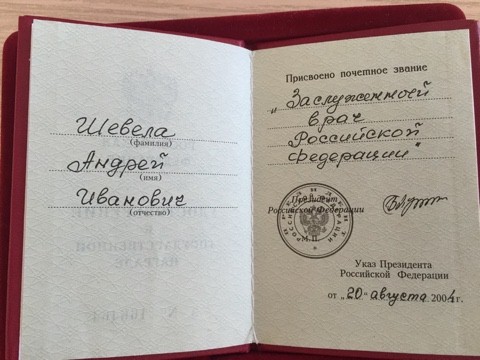 Шевела
(фамилия)
Андрей
(имя)
Иванович
(отчество)
Присвоено почетное звание
„Заслуженный
врач
Российской
федерации"
Президент
Российской Федерации
М.П.
Указ Президента
Российской Федерации
от „20" августа 2004 г.